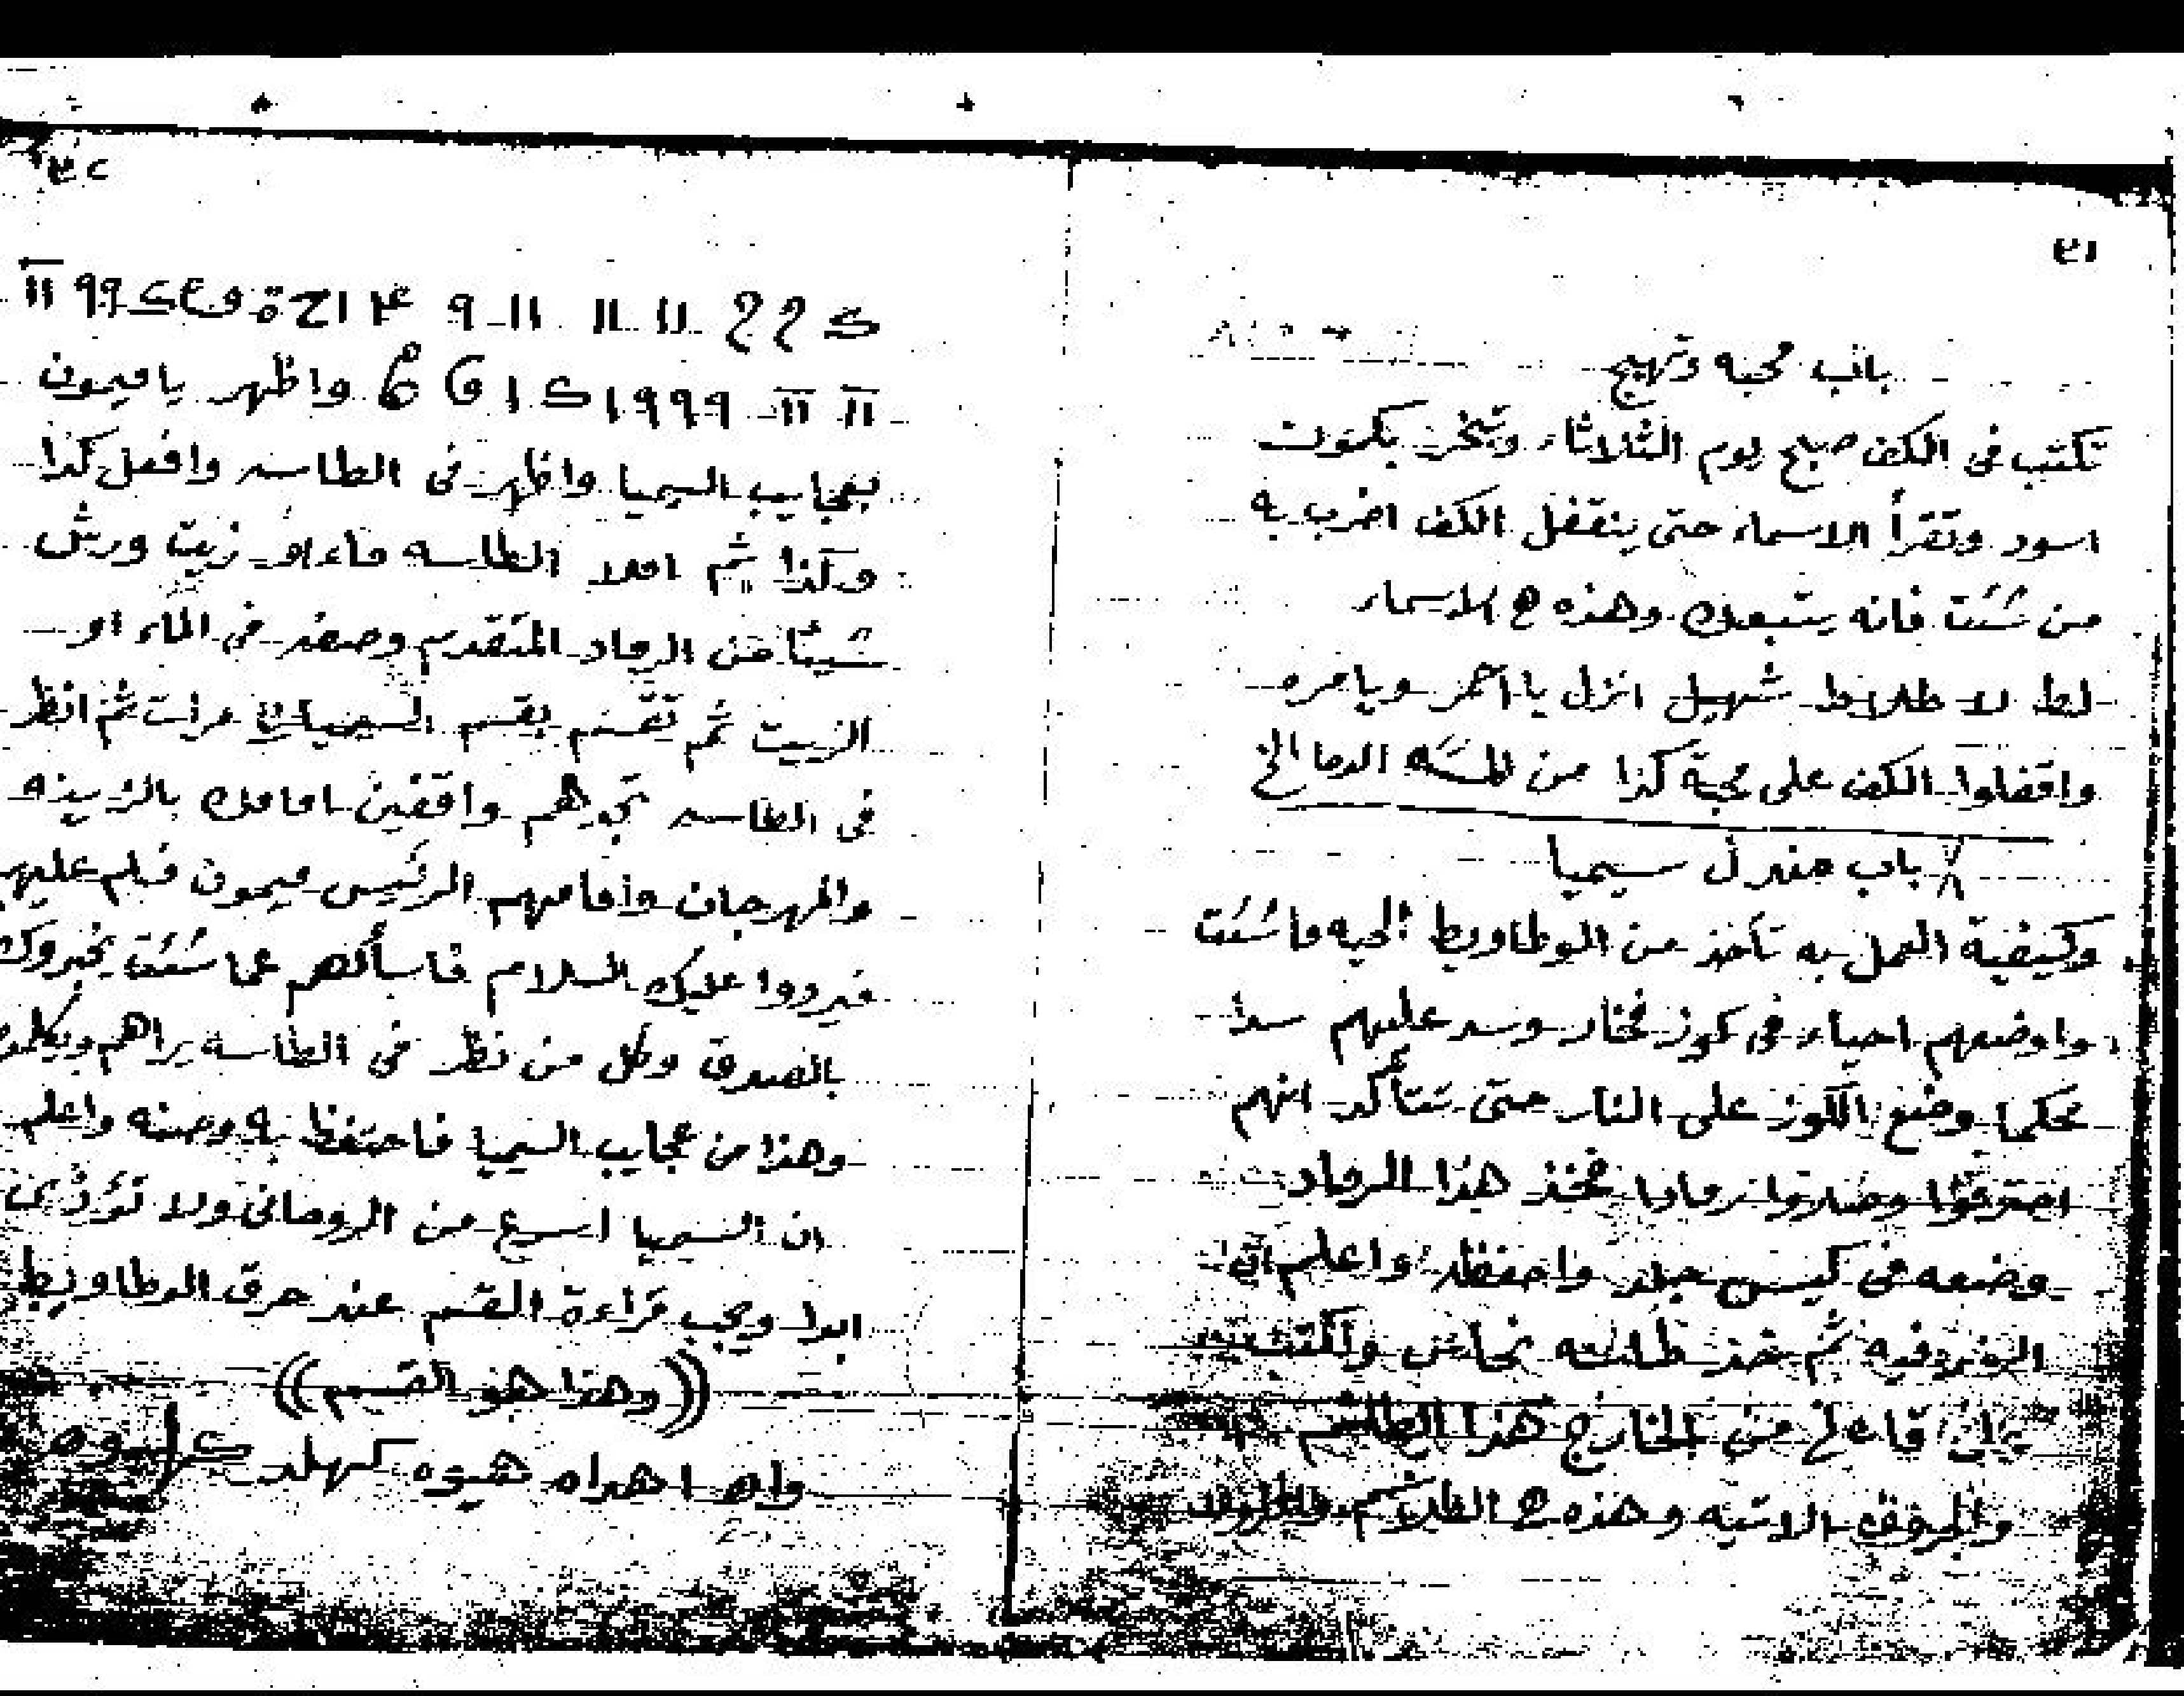 ٤١
باب محبه وتهيج
تكتب فى الكف صبح يوم الثلاثاء وتبخر بكمون
اسود وتقرأ الاسماء حتى ينقفل الكف اضرب به
من شئت فانه يتبعك وهذه هى الاسماء
لط لا طلاط شهيل انزل يا احمر ويا مره
واقفلوا الكف على محبة كذا من الخ
باب مندل سيميا
وكيفية العمل به تأخذ من الوطاويط الحيه ما شئت
واوضعهم احياء فى كوز فخار وسد عليهم سدا
محكما وضع الكوز على النار حتى تتأكد انهم
احترقوا وصاروا رمادا فخذ هذا الرماد
وضعه فى كيس جلد واحفظه واعلم ان
فيه ثم خذ طاسه نحاس واكتب
من الخارج هذا الطلسم
الاتيه وهذه هى الطلاسم
٤٢
واظهر يا ميمون
بعجايب السيميا واظهر فى الطاسه وافعل كذا
وكذا ثم املا الطاسه ماء او زيت ورش
شيئا من الرماد المتقدم وصفه فى الماء او
الزيت ثم تقسم بقسم السيميا مرات ثم انظر
فى الطاسه تجدهم واقفين امامك بالزينه
والمهرجان وامامهم الرئيس ميمون فسلم عليهم
فيردوا عليك السلام فاسألهم عما شئت يخبروك
بالصدق وكل من نظر فى الطاسه يراهم
وهذا من عجايب السيميا فاحتفظ به وصنه واعلم
ان السيميا اسرع من الروحانى ولا تؤذى
ابدا ويجب قراءة القسم عند حرق الوطاويط
((وهذا هو القسم))
واه اهداه هيوه كهلد